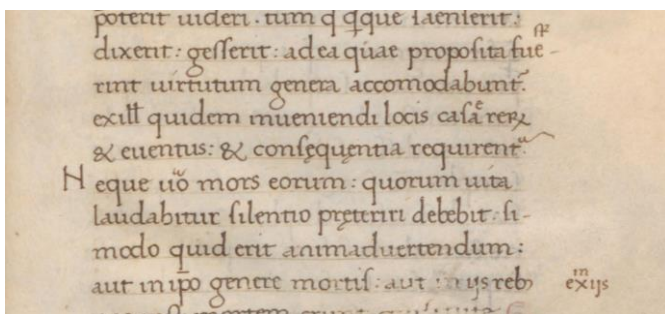 poterit uideri . tum q̃ q̃que saenserit :
dixerit : gesserit : ad ea quae proposita fue-
rint uirtutum genera accomodabunt᷑.
ex ill̃ quidem inueniendi locis casae rerꝝ
& euentus : & consęquentia requirent᷑
Neque uo᷑ mors eorum : quorum uita
laudabitur silentio pręteriri debebit : si-
modo quid erit animaduertendum :
aut in ip̃o genere mortis : aut in ijs reb;
in
ex ijs